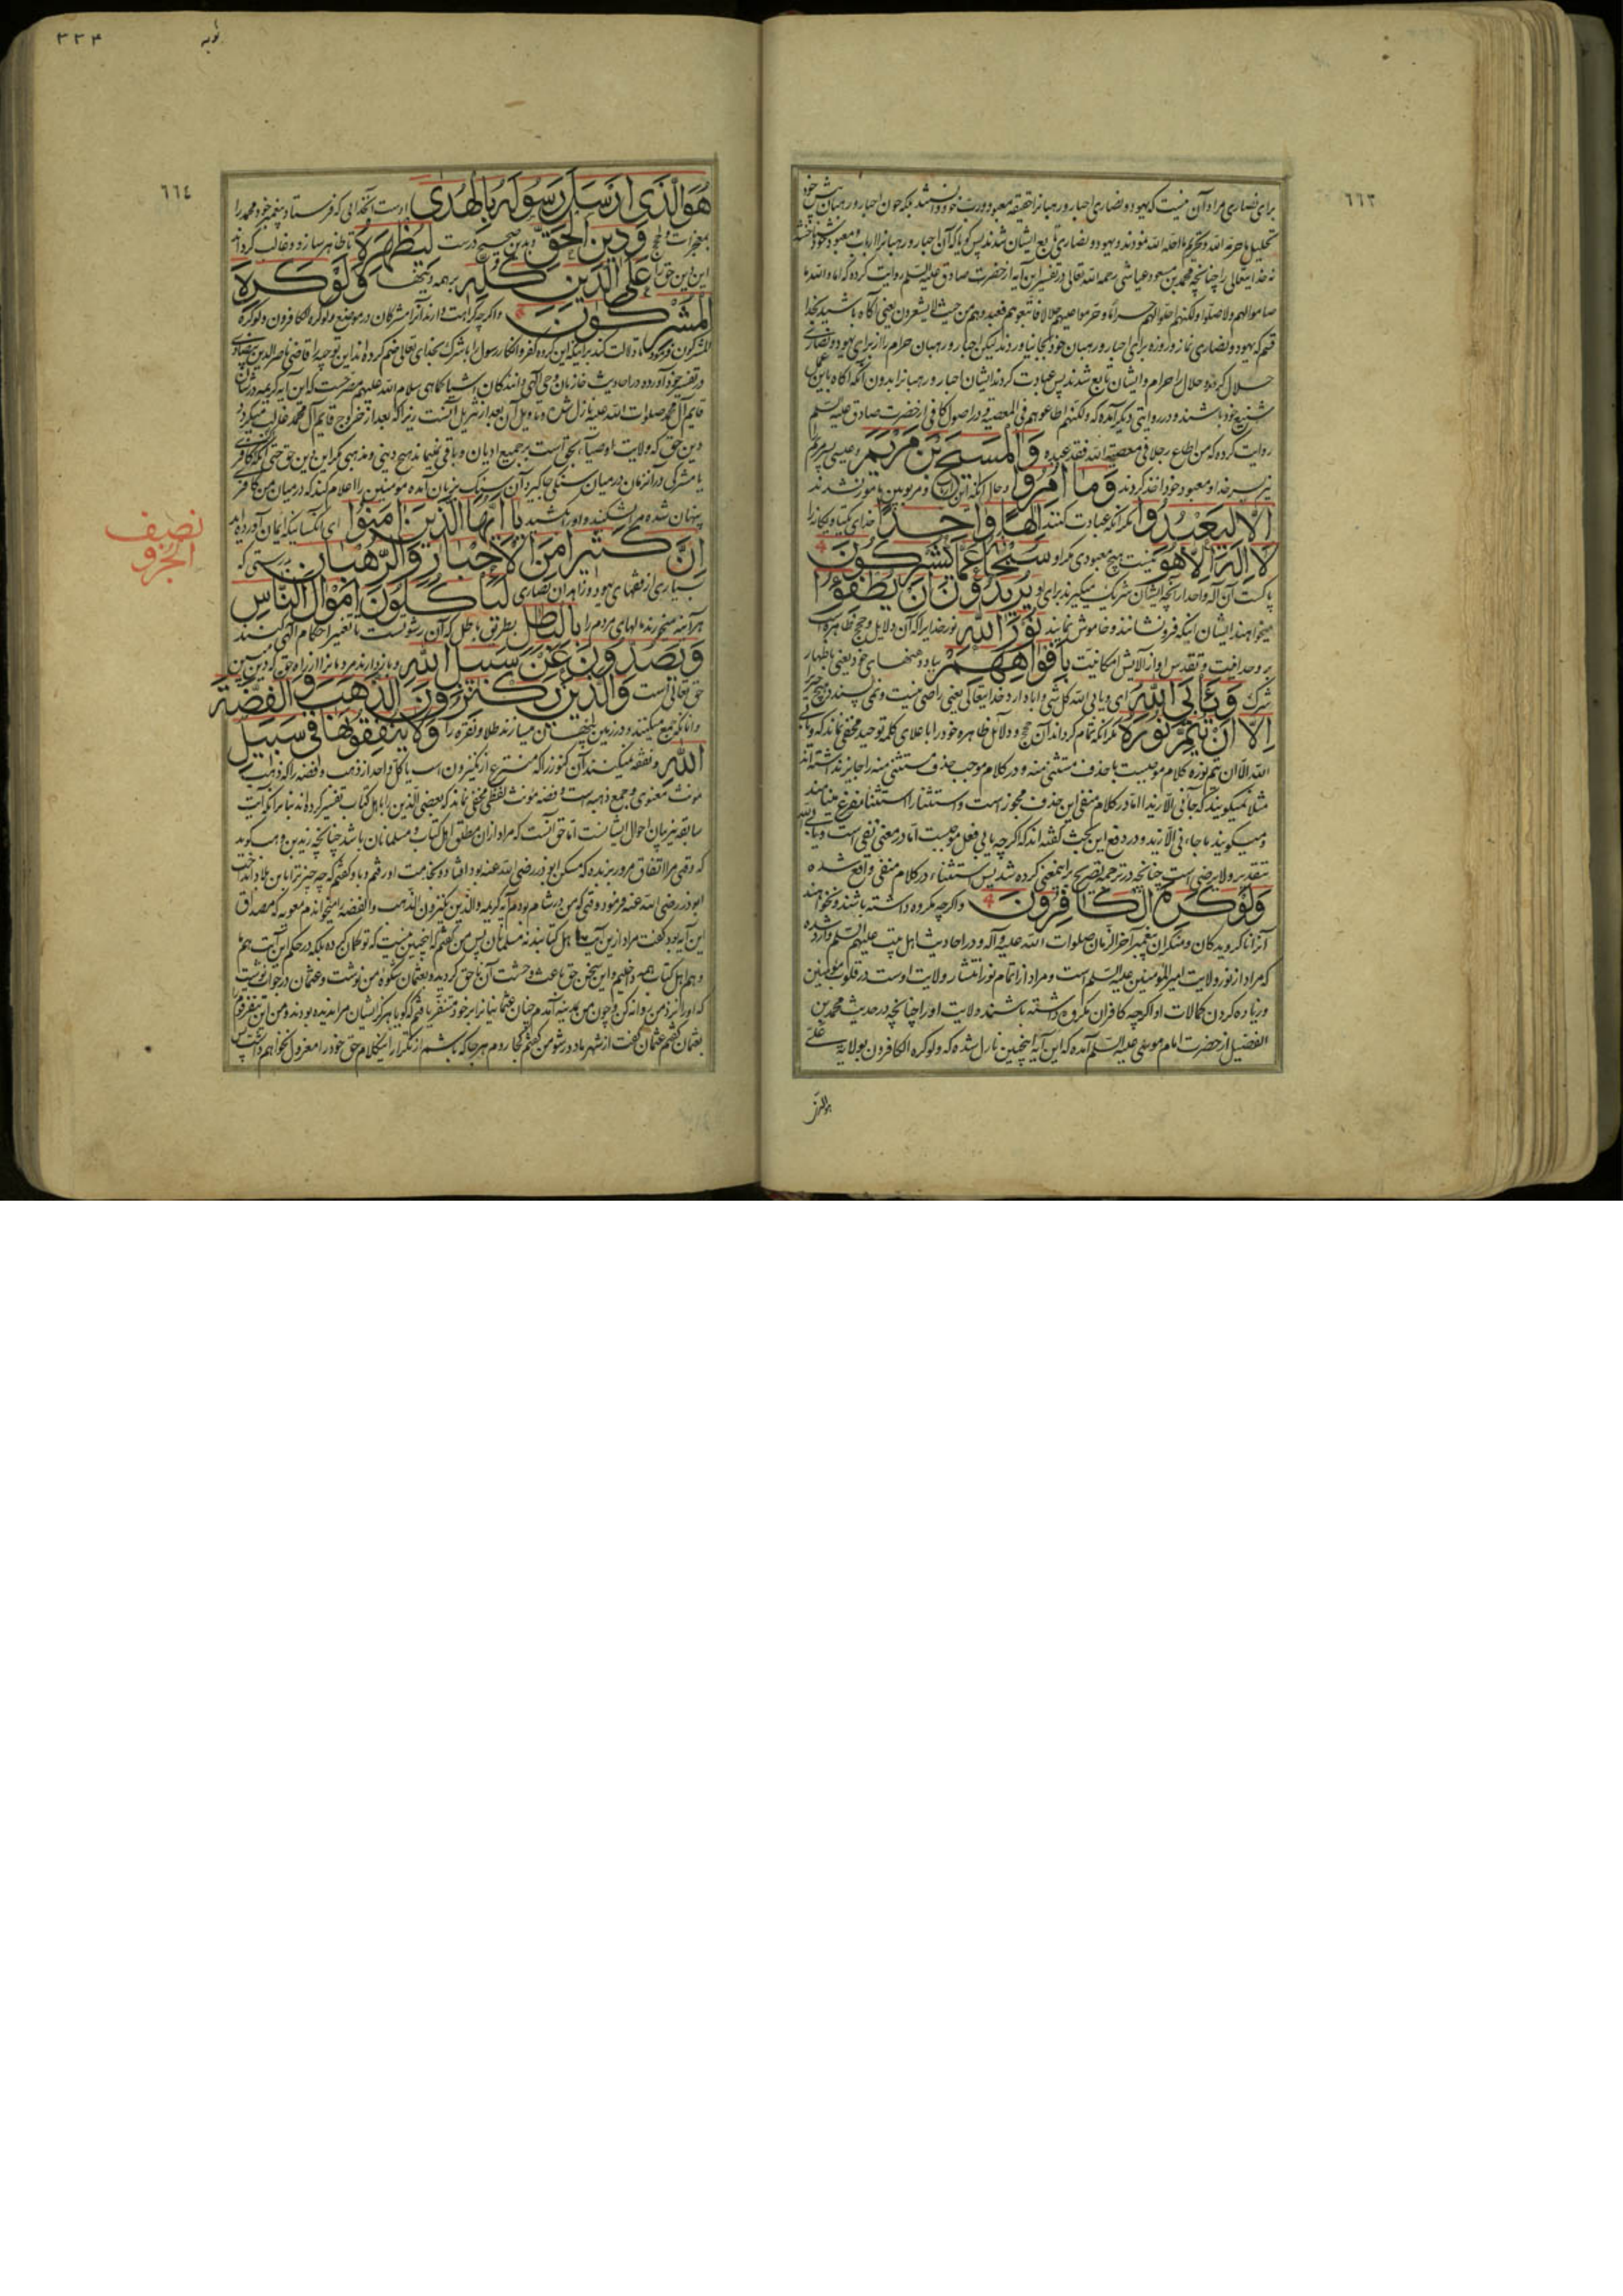 ٦٦٣
برای نصاری مراد آن نیست که یهود و نصاری احبار و رهبانرا
تحلیل ما حرم الله و تحریم ما احله الله نمودند و یهود و نصاری تابع ایشان شدند پس گویا که
نه خدایتعالی را چنانچه محمد بن مسعود عیاشی رحمه الله تعالی در تفسیر این آیه از حضرت صادق علیه السلم روایت کرده که اما والله ما
صاموا لهم ولا صلوا ولکنهم احلوا لهم حراما و حرموا علیهم حلالا فاتبعوهم فعبدوهم من حیث لا یشعرون یعنی آگاه باشید بخدا
قسم که یهود و نصاری نماز و روزه برای احبار و رهبان خود بجا نیاوردند لیکن احبار و رهبان حرام را از برای یهود و نصاری
حلال کردند و حلال را حرام و ایشان تابع شدند پس عبادت کردند ایشان احبار و رهبانرا بدون آنکه آگاه باین عمل
شنیع خود باشند و در روایتی دیگر آمده که ولکنهم اطاعوهم فی المعصیة و در اصول کافی از حضرت صادق علیه السلم
روایت کرده که من اطاع رجلا فی معصیة الله فقد عبده وَالْمَسِيحَ بْنَ مَرْيَمَ و عیسی پسر مریم را
نیز پسر خدا و معبود خود اخذ کردند وَمَا أُمِرُوا و حال آنکه مأمور نشدند
إِلَّا لِيَعْبُدُوا مگر آنکه عبادت کنند إِلَٰهًا وَاحِدًا خدای یکتا و یگانه را
لَا إِلَٰهَ إِلَّا هُوَ نیست هیچ معبودی مگر او سُبْحَانَهُ عَمَّا يُشْرِكُونَ
پاکست آن اله واحد از آنچه ایشان شریک میگیرند برای او يُرِيدُونَ أَن يُطْفِئُوا
میخواهند ایشان اینکه فرونشانند و خاموش نمایند نُورَ اللَّهِ نور خدا را که آن دلایل و حجج ظاهره است
بر وحدانیت و تقدس او از آلایش امکانیت بِأَفْوَاهِهِمْ بباد دهنهای خود یعنی باظهار
شرک وَيَأْبَى اللَّهُ و ابا دارد خدایتعالی یعنی راضی نیست و نمی پسندد هیچ چیز را
إِلَّا أَن يُتِمَّ نُورَهُ مگر آنکه تمام گرداند آن حجج و دلایل ظاهره خود را باعلای کلمه توحید مخفی نماند که ویأبی
الله الا ان یتم نوره کلام موجبیست با حذف مستثنی منه و در کلام موجب حذف مستثنی منه را جایز نداشته اند
مثلا نمیگویند که جائنی الا زیدا اما در کلام منفی این حذف مجوز است و استثنا را استثناء مفرغ مینامند
و میگویند ما جائنی الا زید و در دفع این بحث گفته اند که اگرچه یابی فعل موجبیست اما در معنی نفی است ویابی الله
بتقدیر ولا یرضی است چنانچه در ترجمه تصریح باینمعنی کرده شد پس استثناء در کلام منفی واقع شده
وَلَوْ كَرِهَ الْكَافِرُونَ و اگرچه مکروه داشته باشند و نخواهند
آنرا ناگرویدگان و منکران پیغمبر آخر الزمان صلوات الله علیه و آله و در احادیث اهل بیت علیهم السلم وارد شده
که مراد از نور ولایت امیر المؤمنین علیه السلم است و مراد از اتمام نور انتشار ولایت اوست در قلوب مؤمنین
و زیاده کردن کمالات او اگرچه کافران مکروه داشته باشند ولایت او را چنانچه در حدیث محمد بن
الفضیل از حضرت امام موسی علیه السلم آمده که این آیه اینچنین نازل شده که ولو کره الکافرون بولایة علی
هو الذی
٣٣٤
توبه
٦٦٤
هُوَ الَّذِي أَرْسَلَ رَسُولَهُ بِالْهُدَىٰ اوست آنخدایی که فرستاد پیغمبر خود محمد را
بمعجزات و حجج وَدِينِ الْحَقِّ و بدین صحیح درست لِيُظْهِرَهُ تا ظاهر سازد و غالب گرداند
این دین حق را عَلَى الدِّينِ كُلِّهِ بر همه دینها وَلَوْ كَرِهَ
الْمُشْرِكُونَ و اگرچه کراهت دارند آنرا مشرکان در موضع ولو کره الکافرون ولو کره
المشرکون فرمود تا دلالت کند براینکه این گروه کفر و انکار رسول را با شرک بخدای تعالی ضم کرده اند این توجیه را قاضی ناصر الدین بیضاوی
در تفسیر خود آورده و در احادیث خازنان وحی الهی و دانندگان اشیا کماهی سلام الله علیهم مصرحست که این آیه کریمه در شان
قایم آل محمد صلوات الله علیه نازل شده و تاویل آن بعد از تنزیل آنست زیرا که بعد از خروج قایم آل محمد غالب میگردد
دین حق که ولایت اوصیاء بحق است بر جمیع ادیان و باقی نمیماند هیچ دینی و مذهبی مگر این دین حق حتی آنکه اگر کافری
یا مشرکی در آنزمان در میان سنگی جا گیرد آن سنگ بزبان آمده مومنین را اعلام کند که در میان من کافری
پنهان شده مرا بشکنید و او را بکشید يَا أَيُّهَا الَّذِينَ آمَنُوا ای آنکسانیکه ایمان آورده اید
إِنَّ كَثِيرًا مِّنَ الْأَحْبَارِ وَالرُّهْبَانِ بدرستی که
نصف الجزو
بسیاری از فقهای یهود و زاهدان نصاری لَيَأْكُلُونَ أَمْوَالَ النَّاسِ
هرآینه میخورند مالهای مردم را بِالْبَاطِلِ بطریق باطل که آن رشوتست با تغییر احکام الهی میکنند
وَيَصُدُّونَ عَن سَبِيلِ اللَّهِ و باز میدارند مردمانرا از راه حق که دین مبین
حق تعالی است وَالَّذِينَ يَكْنِزُونَ الذَّهَبَ وَالْفِضَّةَ
و آنانکه جمع میکنند و در زمین پنهان میسازند طلا و نقره را وَلَا يُنفِقُونَهَا فِي سَبِيلِ
اللَّهِ و نفقه نمیکنند آن کنوز را که منتزع از یکنزون است یا کل واحد از ذهب و فضه را که ذهب
مونث معنوی و جمع ذهبه است و فضه مونث لفظی مخفی نماند که بعضی الذین را باهل کتاب تفسیر کرده اند بنابر آنکه آیت
سابقه نیز بیان احوال ایشانست اما حق آنست که مراد از ان مطلق اهل کتاب و مسلمانان باشد چنانچه زید بن وهب گوید
که وقتی مرا اتفاق مرور بربذه که مسکن ابوذر رضی الله عنه بود افتاد و بخدمت او رفتم و باو گفتم که چه چیز ترا باین بلاد انداخت
ابوذر رضی الله عنه فرمود وقتی که من در شام بودم آیه کریمه والذین یکنزون الذهب والفضة را میخواندم معویه که مصداق
این آیه بود گفت مراد ازین آیت اهل کتابند نه مسلمانان پس من گفتم که اینچنین نیست که تو گمان کرده بلکه در حکم این آیت هم ما
و هم اهل کتاب همه داخلیم و این سخن حق باعث وحشت آن ناحق گردید و بعثمان شکوه من نوشت و عثمان در جواب نوشت
که او را نزد من روانه کن و چون من بمدینه آمدم چنان عثمانیانرا بر خود متنفر یافتم که گویا هرگز ایشان مرا ندیده بودند و من این تنفر قوم را
بعثمان گفتم عثمان گفت از شهر ما دور شو من گفتم کجا روم هر جا که باشم از تکرار اینکلام حق خود را معزول نخواهم داشت پس